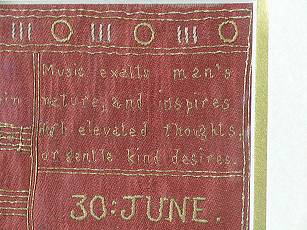 Music exalts man's
in nature, and inspires
elevated thoughts,
or gentle kind desires.
30:JUNE.